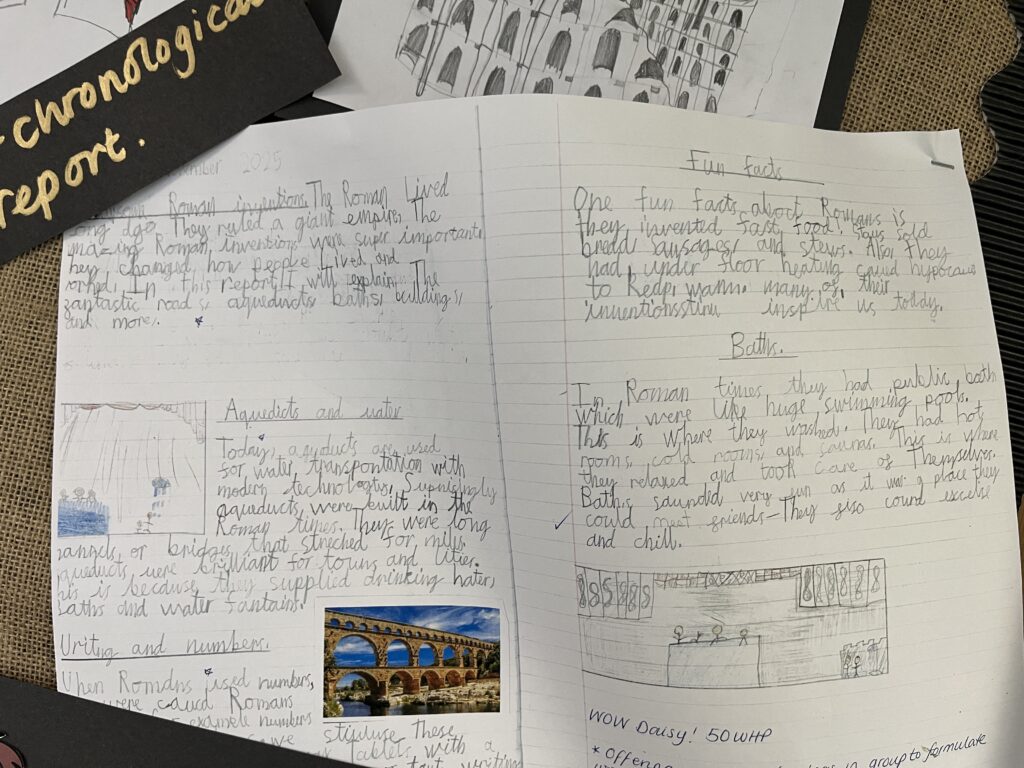 -chronological
report.
2025
Roman inventions. The Roman Lived
long ago. They ruled a giant empire. The
amazing Roman inventions were super important
changed how people Lived and
In this report I will explain The
fantastic roads, aqueducts, baths, buildings,
and more.
Aquedicts and water
Today, aquducts are used
for water transpontation with
modern technologis. Suprisingly
aquaducts were built in the
Roman times. They were long
or bridges that streched for miles.
were brilliant for touns and cities.
is because they supplied drinking hater,
baths and water fantains.
Uriting and numbers.
When Romans used numbers,
were caucd Romans
numbers
these
tablets with a
writing
Fun Facts
One fun facts about Romans is
they invented fast food. sold
bread, sausages and stews. Also, They
had under floor heating caud hypocaus
to Keep warm. many of their
inspire us today.
Baths.
In Roman times, they had public bath
which were like huge swimming pools.
This is where they washed. They had hot
rooms, cold rooms and saunas. This is where
they relaxed and took care of Themselves.
Baths saundid very fun as it was a place they
could meet friends – They also could
and chill.
WOW Daisy! 50WHP
* Offering
in group to formulate